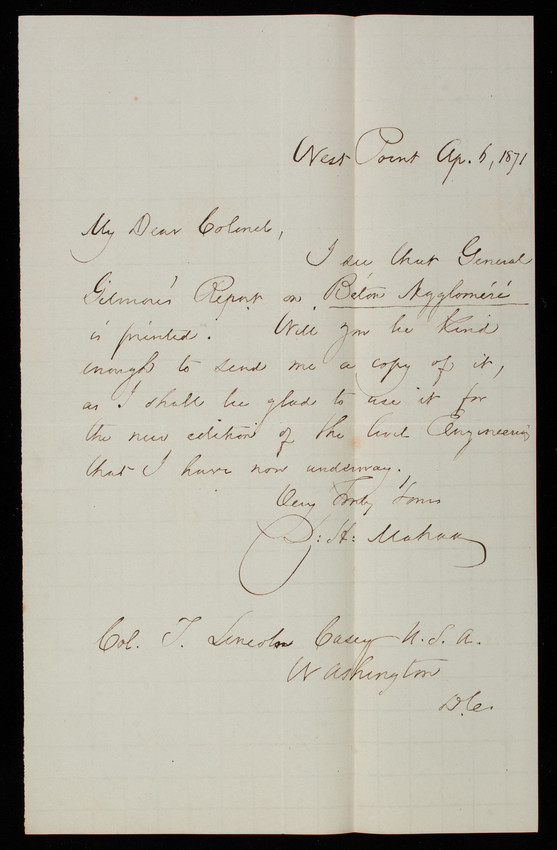 West Point Ap. 6, 1871
My Dear Colonel,
I see that General
Gilmore's Report on Béton Aggloméré
is printed. Will you be kind
enough to send me a copy of it,
as I shall be glad to use it for
the new edition of the Civil Engineering
that I have now underway.
Very Truly Yours
D: H: Mahan
Col. T. Lincoln Casey U.S.A.
Washington
D.C.